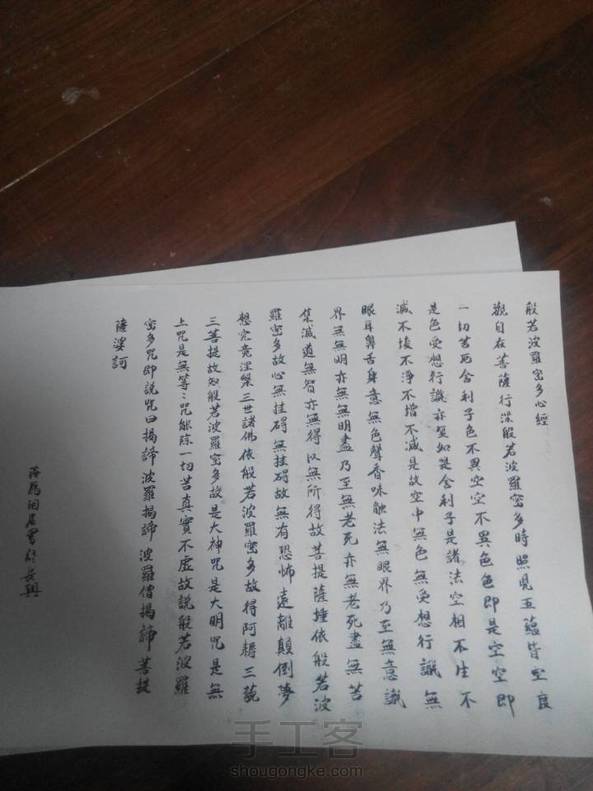 般若波羅密多心經
觀自在菩薩行深般若波羅密多時照見五蘊皆空度
一切苦厄舍利子色不異空空不異色色即是空空即
是色受想行識亦复如是舍利子是諸法空相不生不
滅不垢不淨不增不減是故空中無色無受想行識無
眼耳鼻舌身意無色聲香味触法無眼界乃至無意識
界無無明亦無無明盡乃至無老死亦無老死盡無苦
集滅道無智亦無得以無所得故菩提薩埵依般若波
羅密多故心無挂碍無挂碍故無有恐怖遠離顛倒夢
想究竟涅槃三世諸佛依般若波羅密多故得阿耨三藐
三菩提故知般若波羅密多故是大神咒是大明咒是無
上咒是無等:咒能除一切苦真實不虛故説般若波羅
密多咒即説咒曰揭諦波羅揭諦波羅僧揭諦菩提
薩婆訶
手工客
shougongke.com